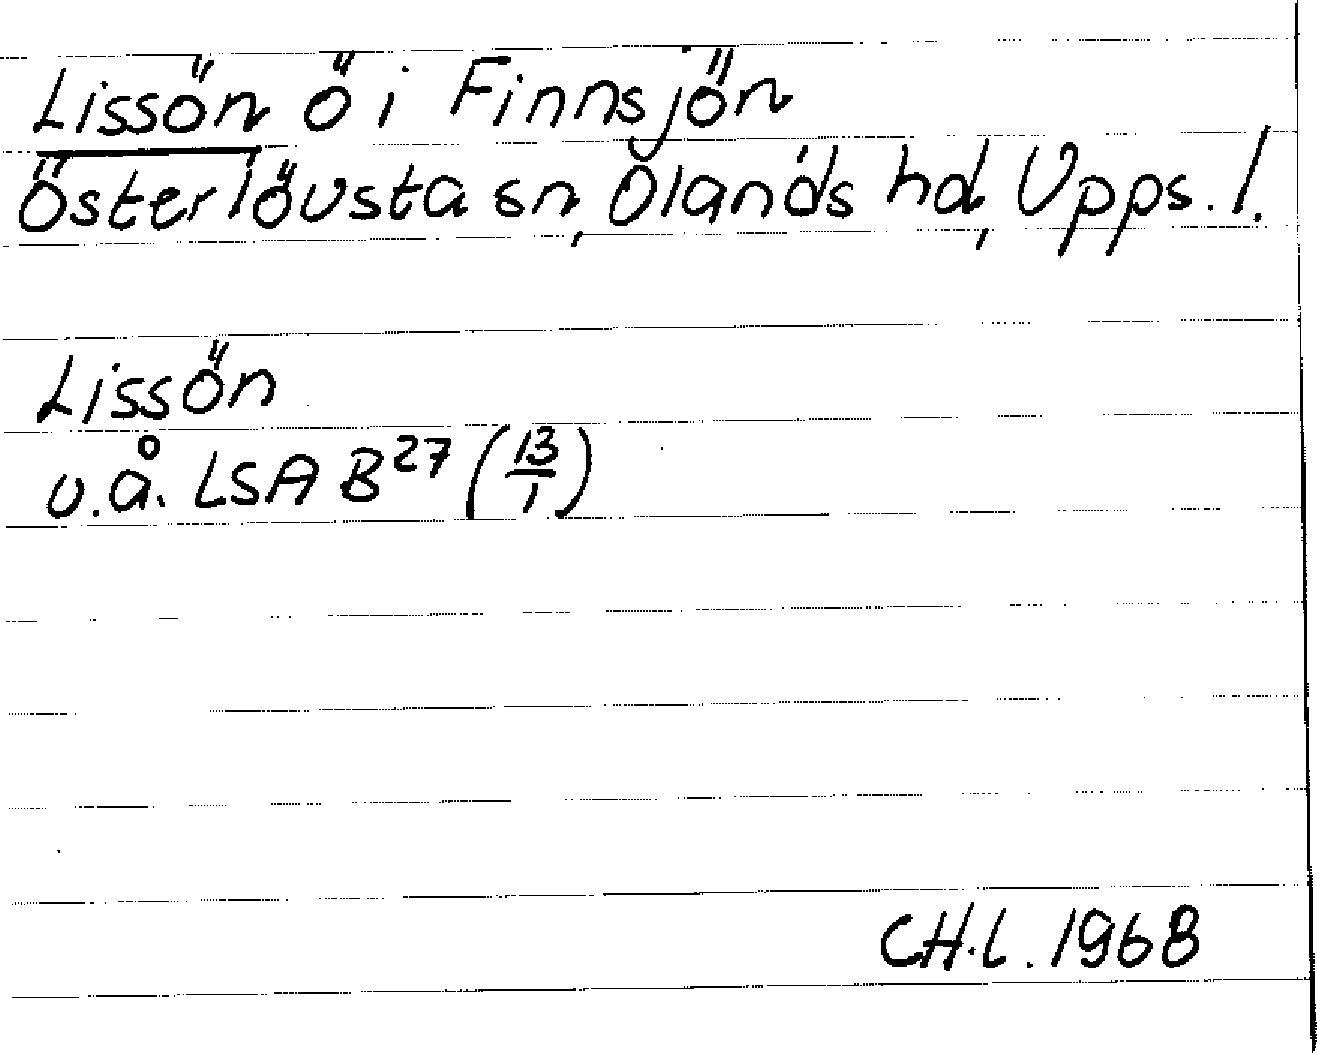 Lissön ö i Finnsjön
Österlövsta sn, Olands hd, Upps. l.
Lissön
u.å. LSA B²⁷ (13/1)
CH.L. 1968